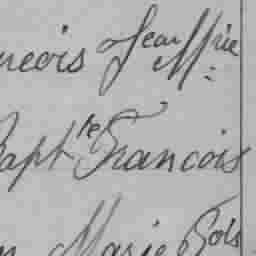 ncois Jean Mie
Bapt te Francois
n Marie Fois